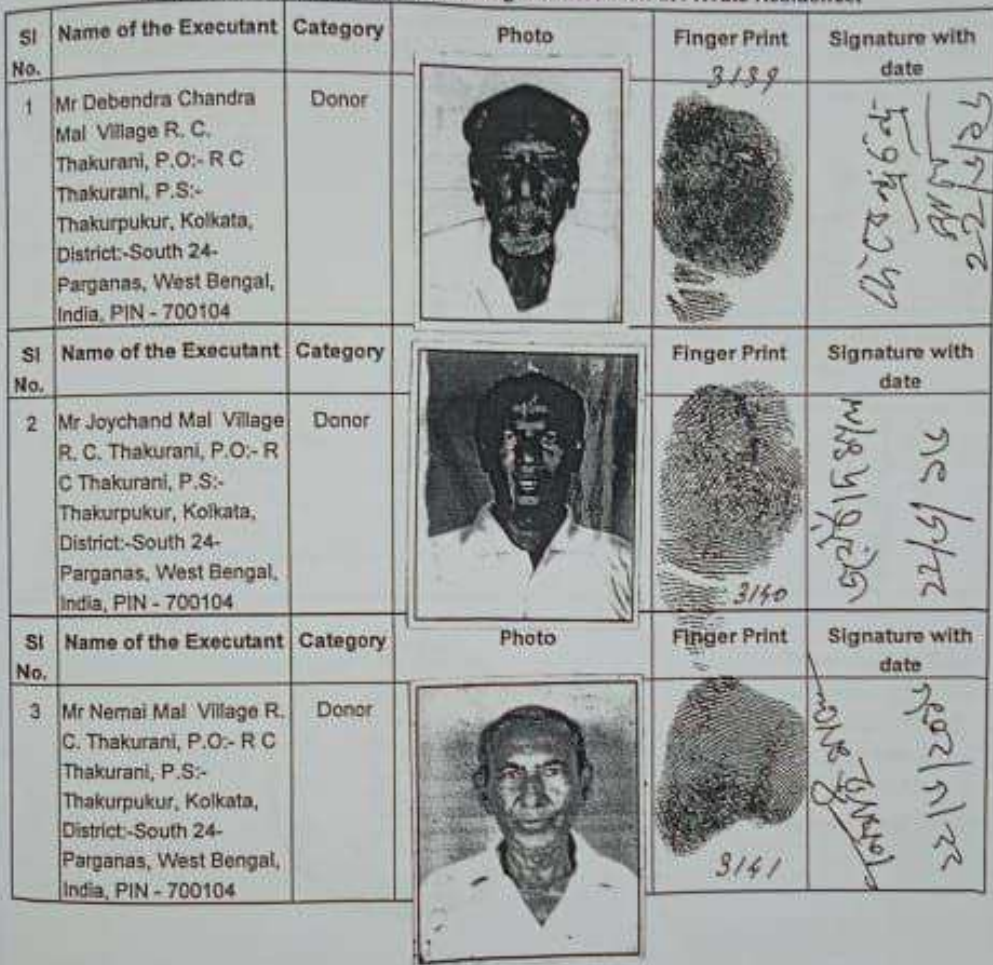 Sl No. Name of the Executant Category Photo Finger Print Signature with date
3139
1 Mr Debendra Chandra Donor
Mal Village R. C.
Thakurani, P.O:- R C
Thakurani, P.S:-
Thakurpukur, Kolkata,
District:-South 24-
Parganas, West Bengal,
India, PIN - 700104
Sl No. Name of the Executant Category Finger Print Signature with date
2 Mr Joychand Mal Village Donor
R. C. Thakurani, P.O:- R
C Thakurani, P.S:-
Thakurpukur, Kolkata,
District:-South 24-
Parganas, West Bengal,
India, PIN - 700104
3140
Sl No. Name of the Executant Category Photo Finger Print Signature with date
3 Mr Nemai Mal Village R. Donor
C. Thakurani, P.O:- R C
Thakurani, P.S:-
Thakurpukur, Kolkata,
District:-South 24-
Parganas, West Bengal,
India, PIN - 700104
3141